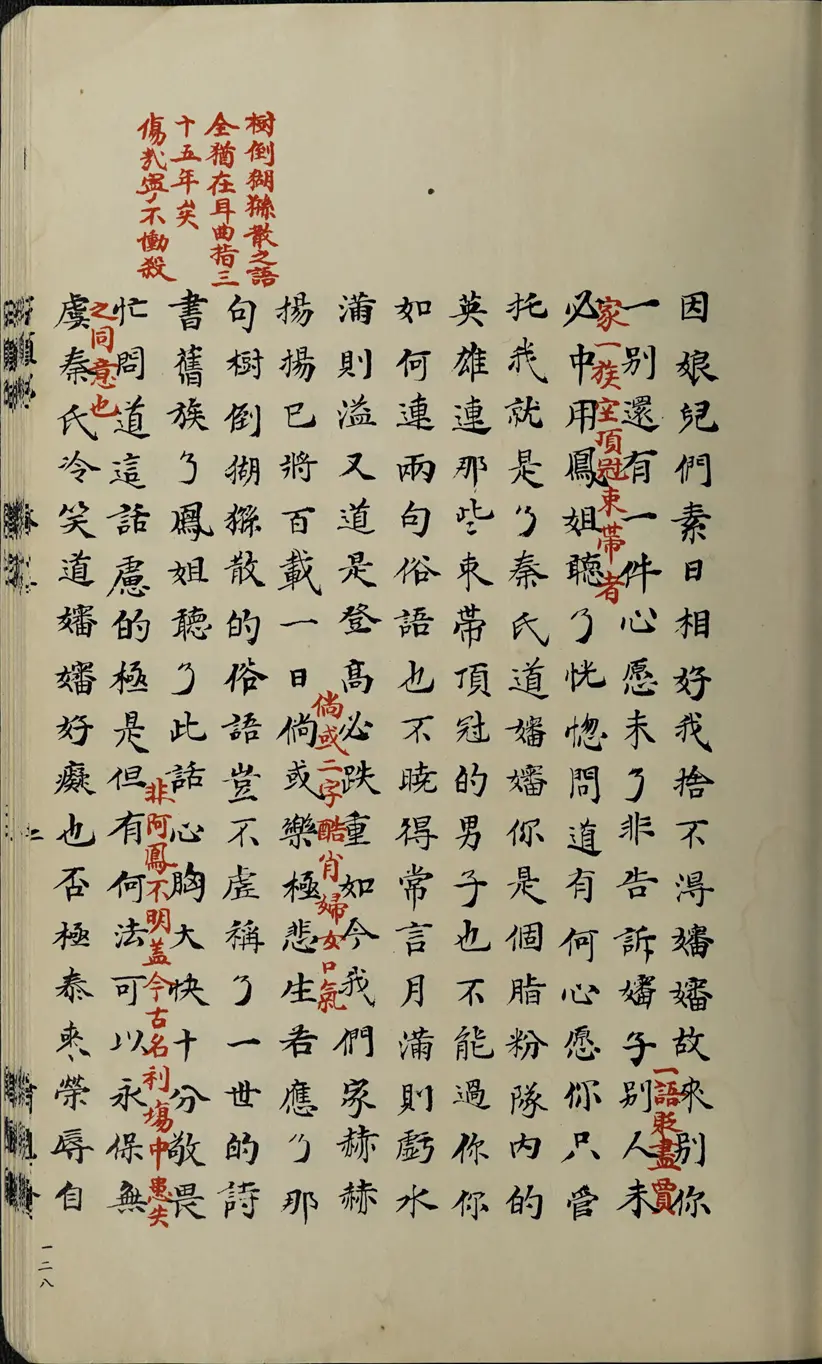 樹倒猢猻散之語
全猶在耳曲指三
十五年矣
傷哉寧不慟殺
因娘兒們素日相好我捨不淂嬸嬸故來别你
一别還有一件心愿未了非告訴嬸子别人未
一語貶盡賈
家一族空頂冠束帶者
必中用鳳姐聽了恍惚問道有何心愿你只管
托我就是了秦氏道嬸嬸你是個脂粉隊内的
英雄連那些束帶頂冠的男子也不能過你你
如何連兩句俗語也不曉得常言月滿則虧水
滿則溢又道是登高必跌重如今我們家赫赫
倘或二字酷肖婦女口氣
揚揚已將百載一日倘或樂極悲生若應了那
句樹倒猢猻散的俗語豈不虛稱了一世的詩
書舊族了鳳姐聽了此話心胸大快十分敬畏
非阿鳳不明蓋今古名利塲中患失
之同意也
忙問道這話慮的極是但有何法可以永保無
虞秦氏冷笑道嬸嬸好癡也否極泰來榮辱自
一二八